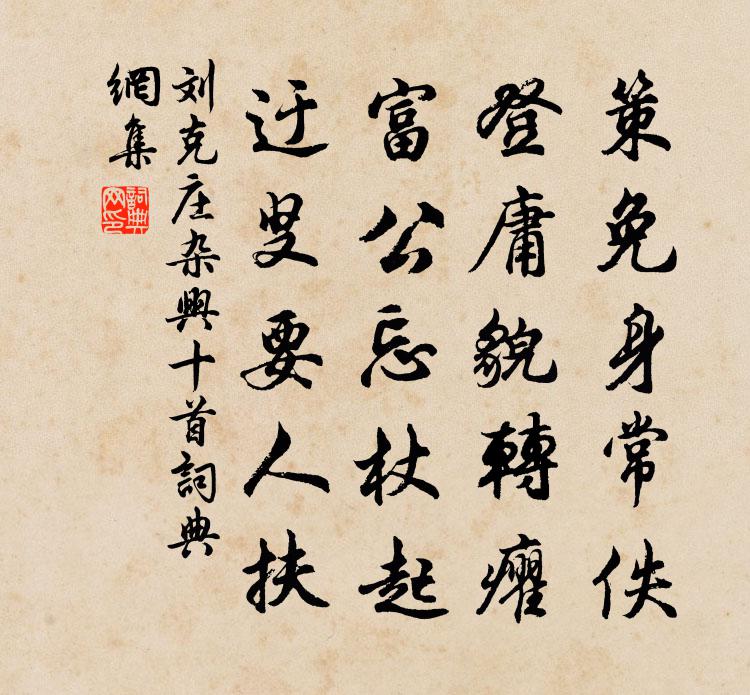 策免身常佚
登庸貌轉癯
富公忘杖起
迂叟要人扶
刘克庄杂興十首詞典
網集
詞典網印